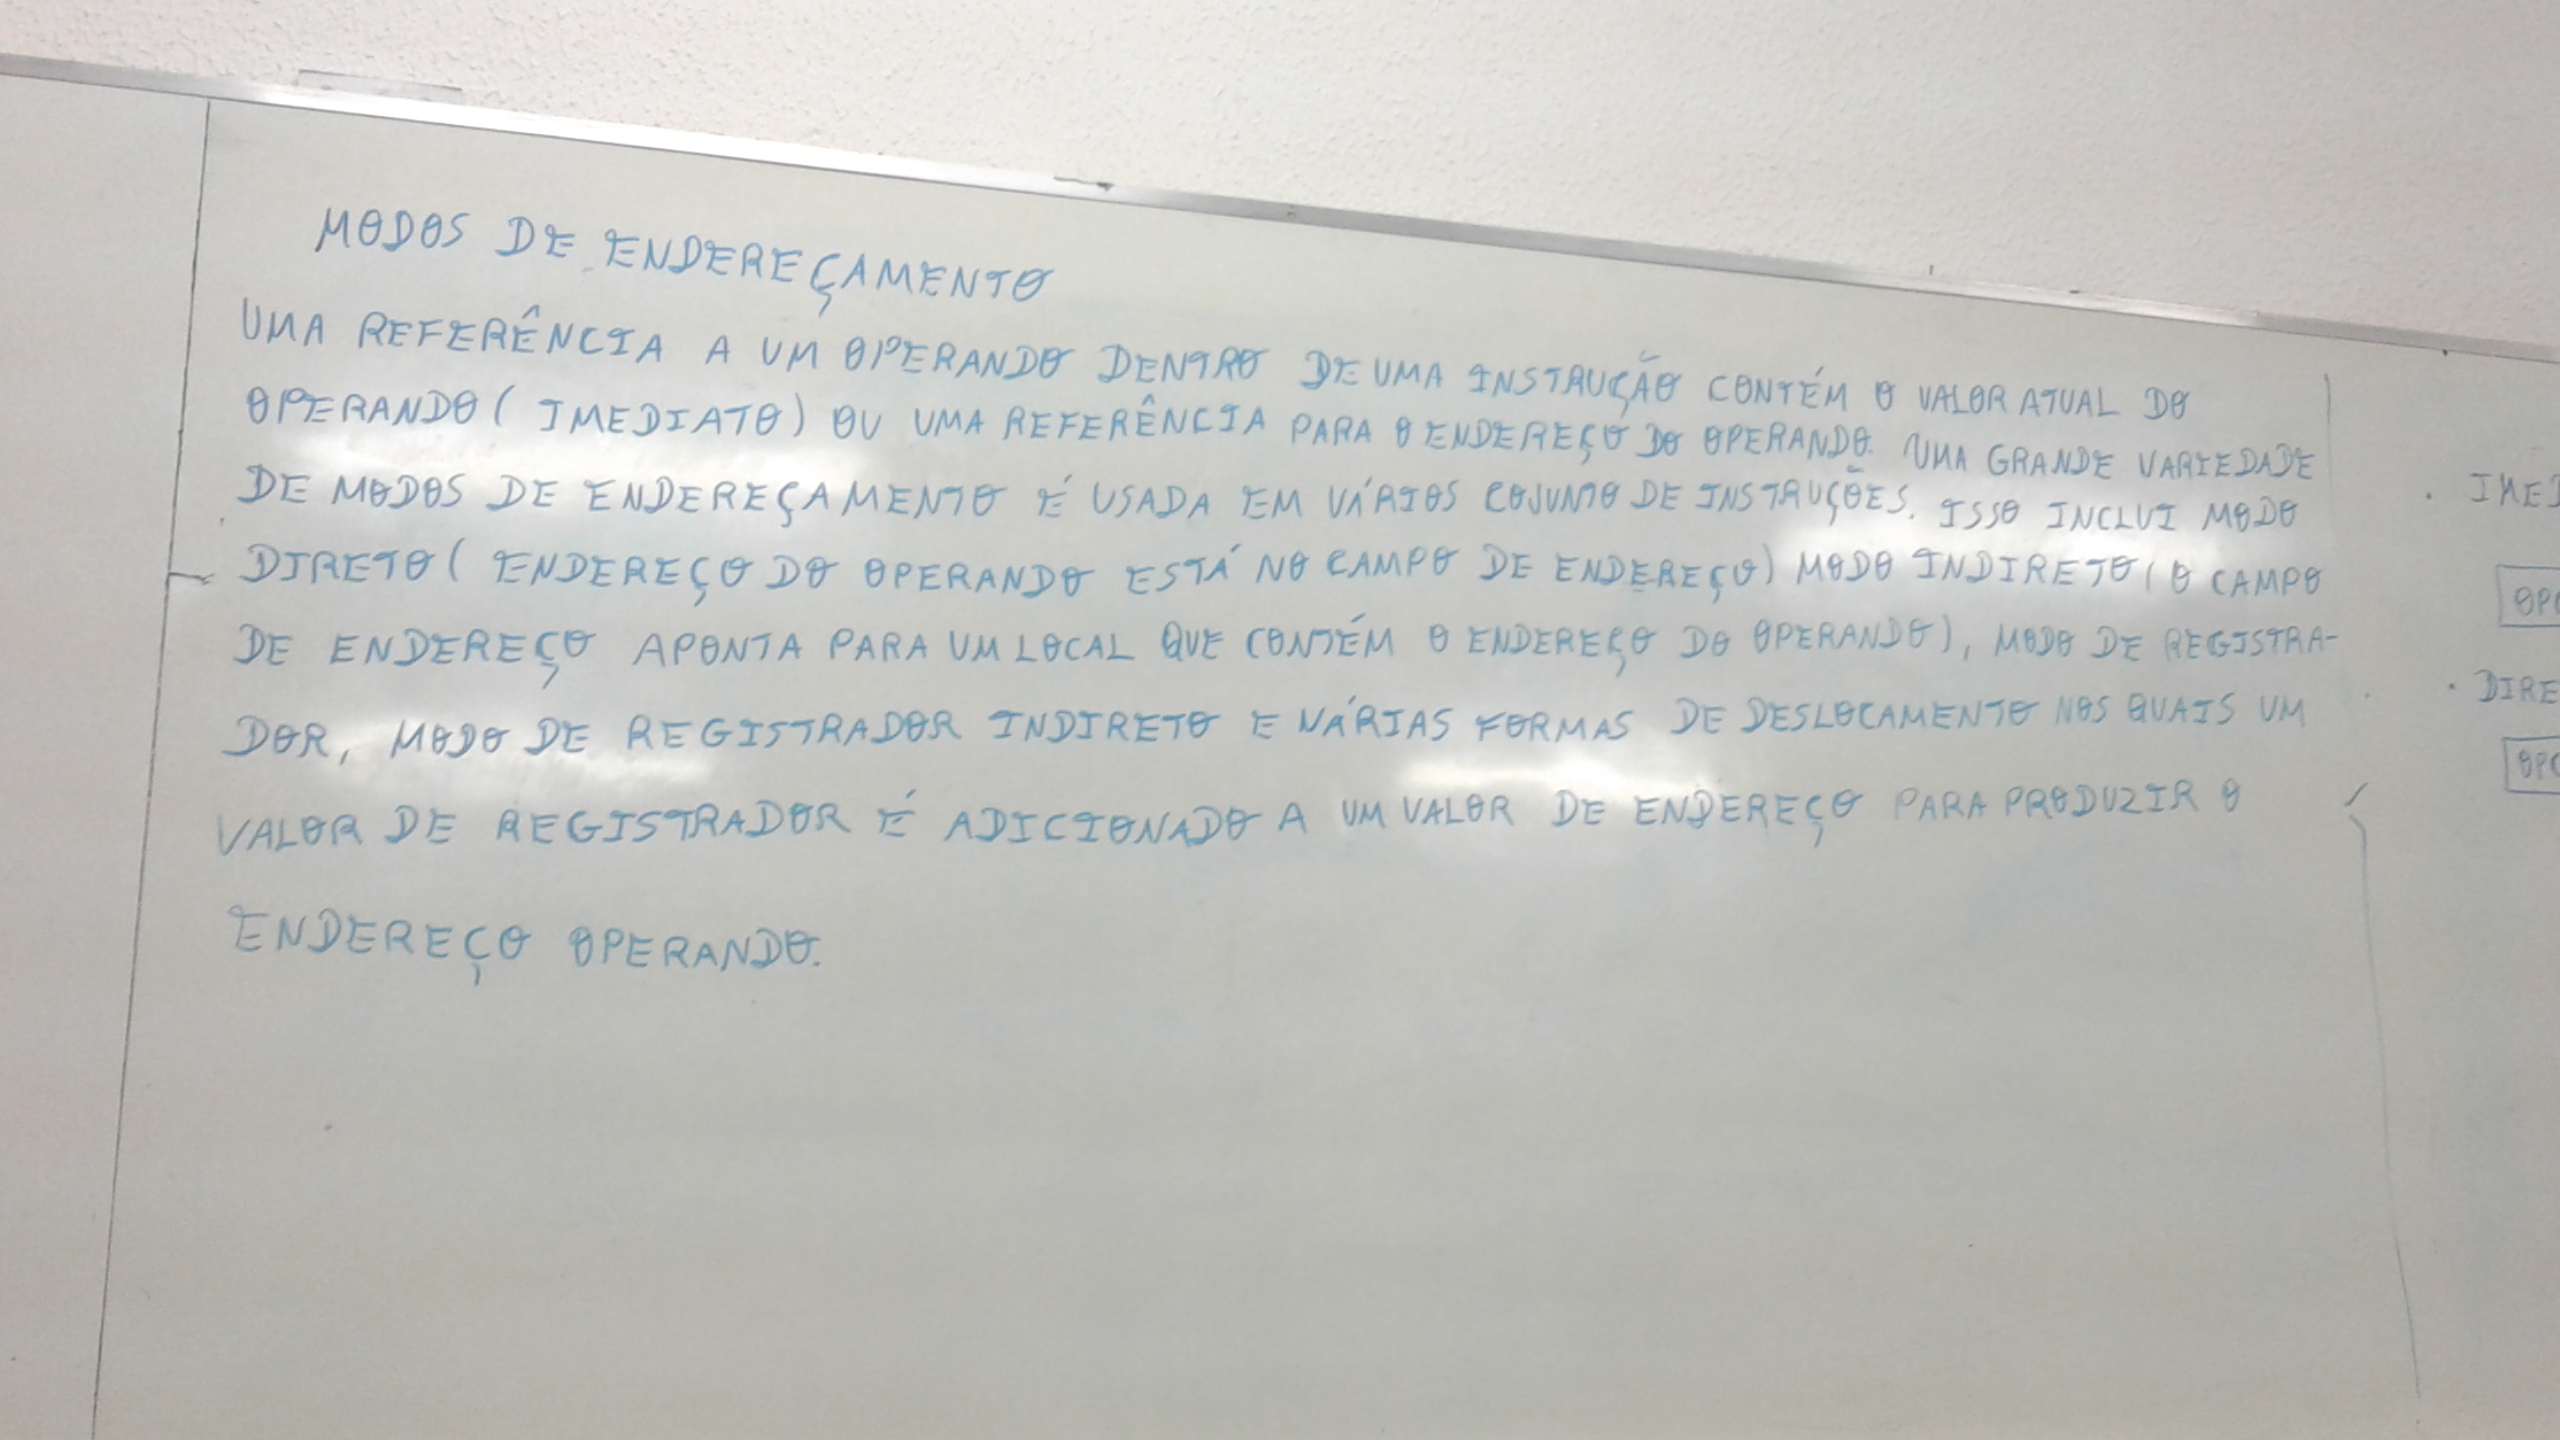 MODOS DE ENDEREÇAMENTO
UMA REFERÊNCIA A UM OPERANDO DENTRO DE UMA INSTRUÇÃO CONTÉM O VALOR ATUAL DO
OPERANDO ( IMEDIATO) OU UMA REFERÊNCIA PARA O ENDEREÇO DO OPERANDO. UMA GRANDE VARIEDADE
DE MODOS DE ENDEREÇAMENTO É USADA EM VÁRIOS COJUNTO DE INSTRUÇÕES. ISSO INCLUI MODO
DIRETO ( ENDEREÇO DO OPERANDO ESTÁ NO CAMPO DE ENDEREÇO) MODO INDIRETO ( O CAMPO
DE ENDEREÇO APONTA PARA UM LOCAL QUE CONTÉM O ENDEREÇO DO OPERANDO), MODO DE REGISTRA-
DOR, MODO DE REGISTRADOR INDIRETO E VÁRIAS FORMAS DE DESLOCAMENTO NOS QUAIS UM
VALOR DE REGISTRADOR É ADICIONADO A UM VALOR DE ENDEREÇO PARA PRODUZIR O
ENDEREÇO OPERANDO.
. IMED
OPC
. DIRE
OPC